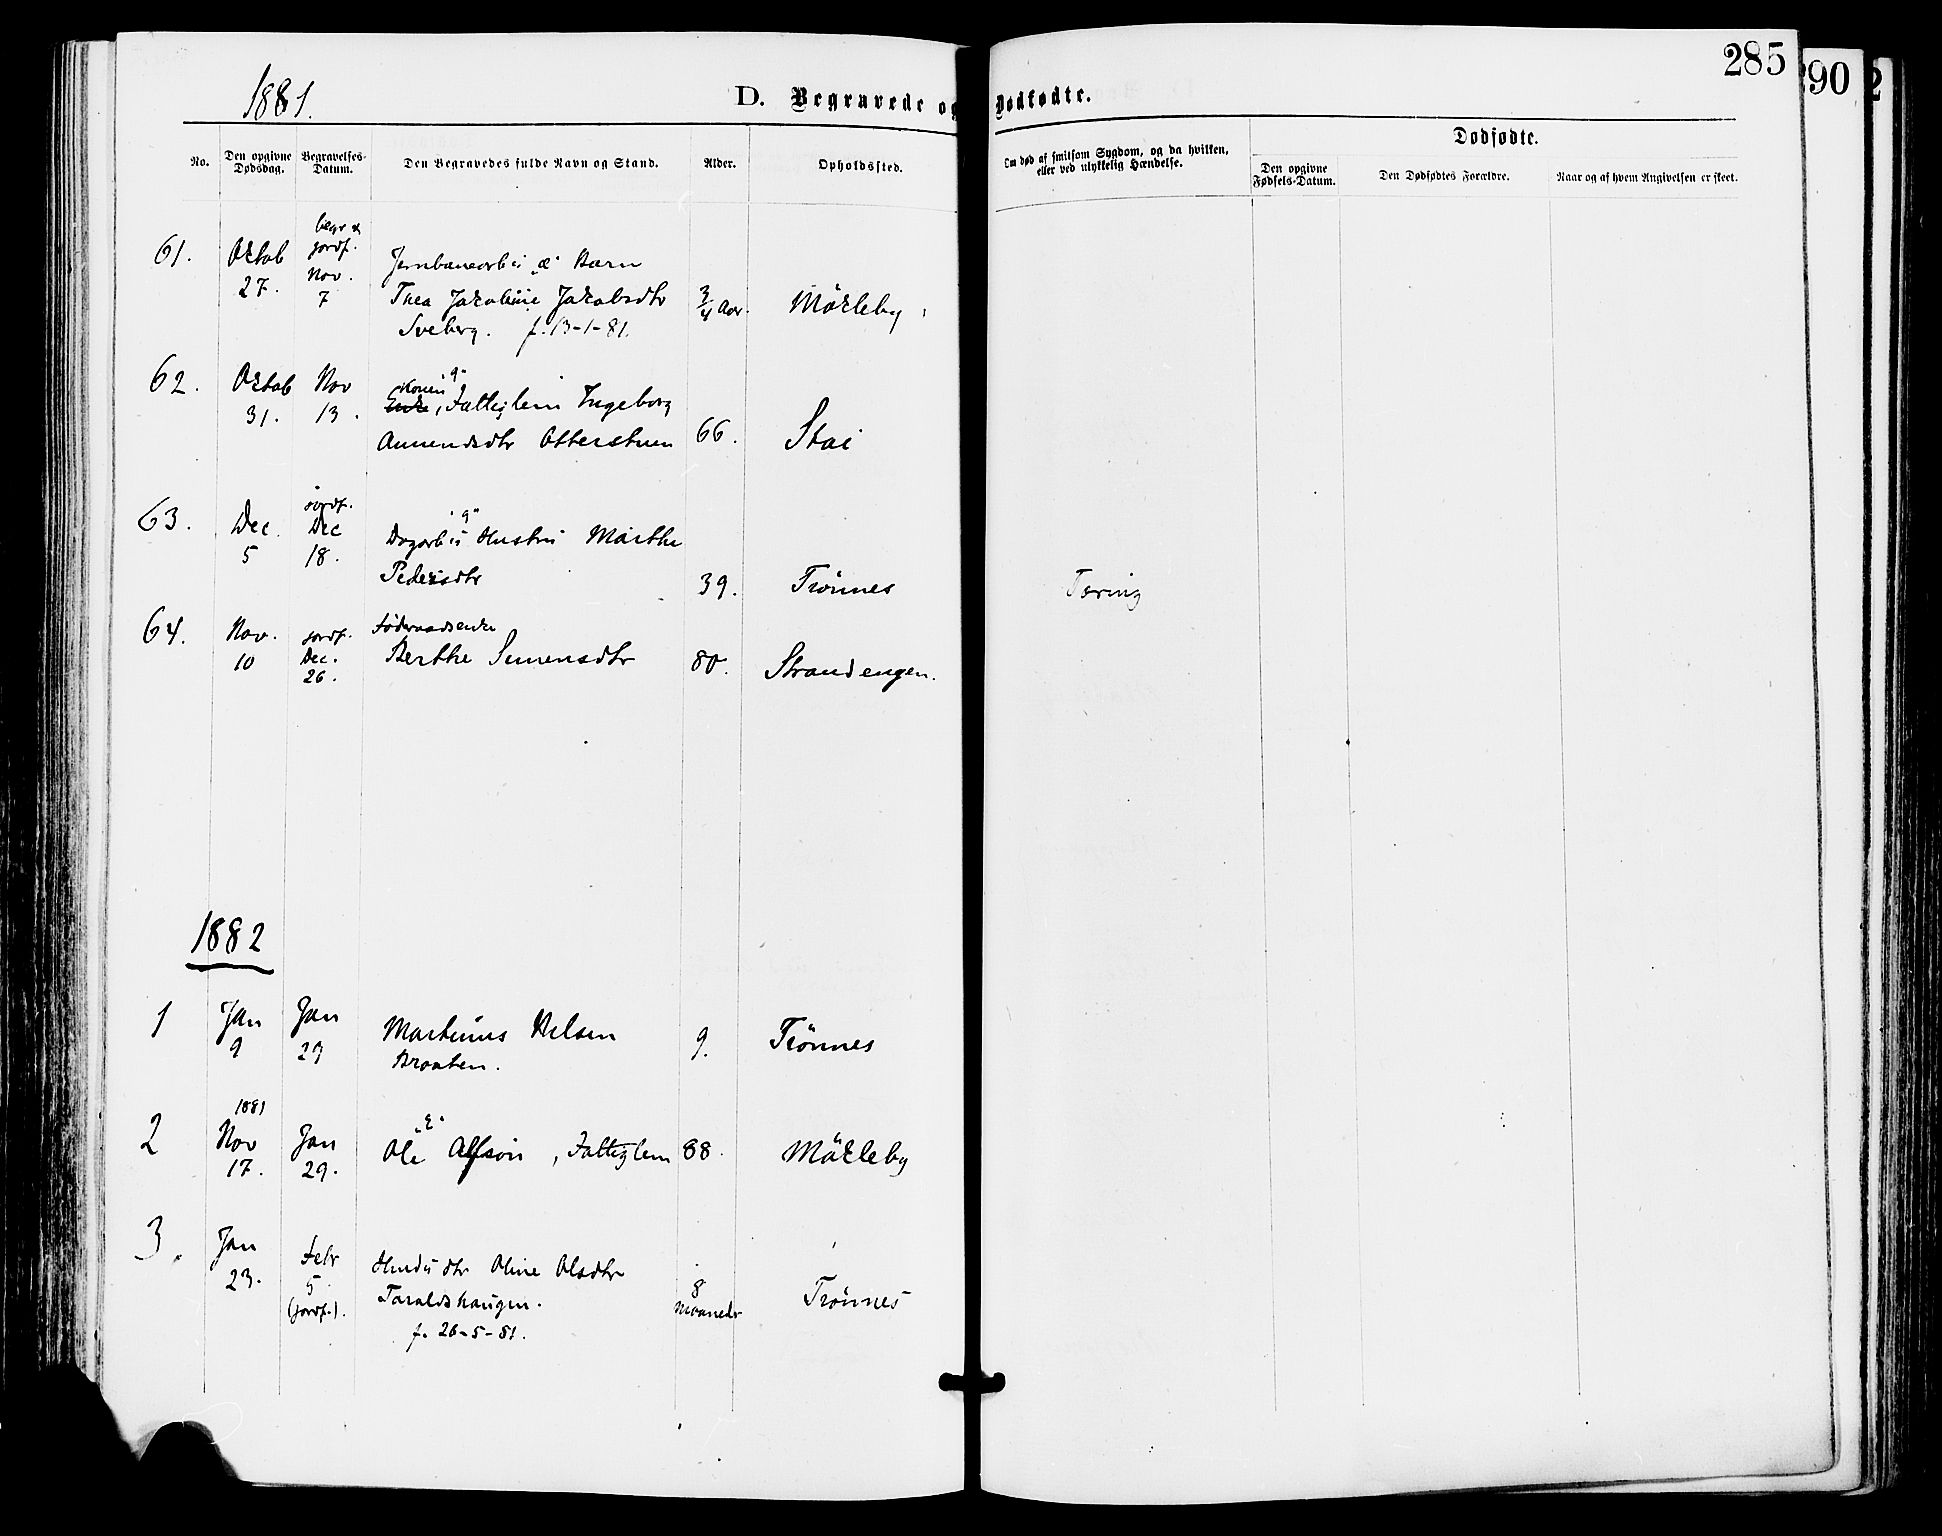 285
290
2
1881.
D. Begravede og Dødfødte.
No.
Den opgivne Dødsdag.
Begravelses-Datum.
Den Begravedes fulde Navn og Stand.
Alder.
Opholdssted.
Om død af smitsom Sygdom, og da hvilken,
eller ved ulykkelig Hændelse.
Dødfødte.
Den opgivne Fødsels-Datum.
Den Dødfødtes Forældre.
Naar og af hvem Angivelsen er skeet.
61.
Oktob
27.
begr &
jordf.
Nov.
7
Jernbanearb: "æ" Barn
Thea Jakobine Jakobsdtr
Sveberg. f. 13-1-81.
3/4 Aar.
Mökleby
62.
Oktob
31.
Nov
13.
Kone "g"
Enke, Fattiglem Ingeborg
Amundsdtr Otterstuen
66.
Stai
63.
Dec.
5
jordf.
Dec
18.
"g"
Dagarb: Hustru Marthe
Pedersdtr
39.
Trönnes
Tæring
64.
Nov.
10
jordf.
Dec.
26.
Föderaadsenke
Berthe Simensdtr
80.
Strandengen.
1882
1
Jan
9
Jan
29
Martinus Nilsen
Braaten.
9.
Trönnes
2
1881
Nov
17.
Jan
29.
"E"
Ole Alfson, Fattiglem
88.
Mökleby
3.
Jan
23.
Febr
5
(jordf.).
Oline Olsdtr
Taraldshaugen.
f. 26-5-81.
8
Maaneder
Trönnes